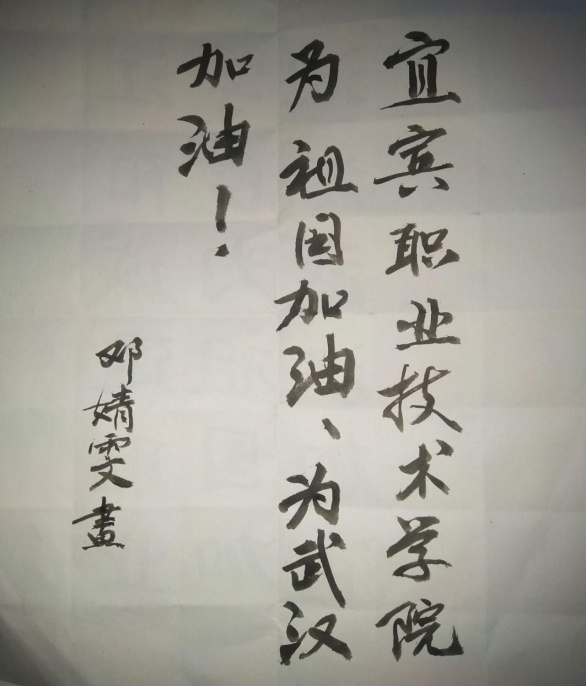 宜宾职业技术学院
为祖国加油、为武汉
加油！
邓婧雯畫